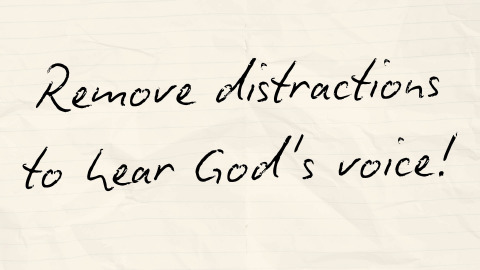 Remove distractions
to hear God's voice!